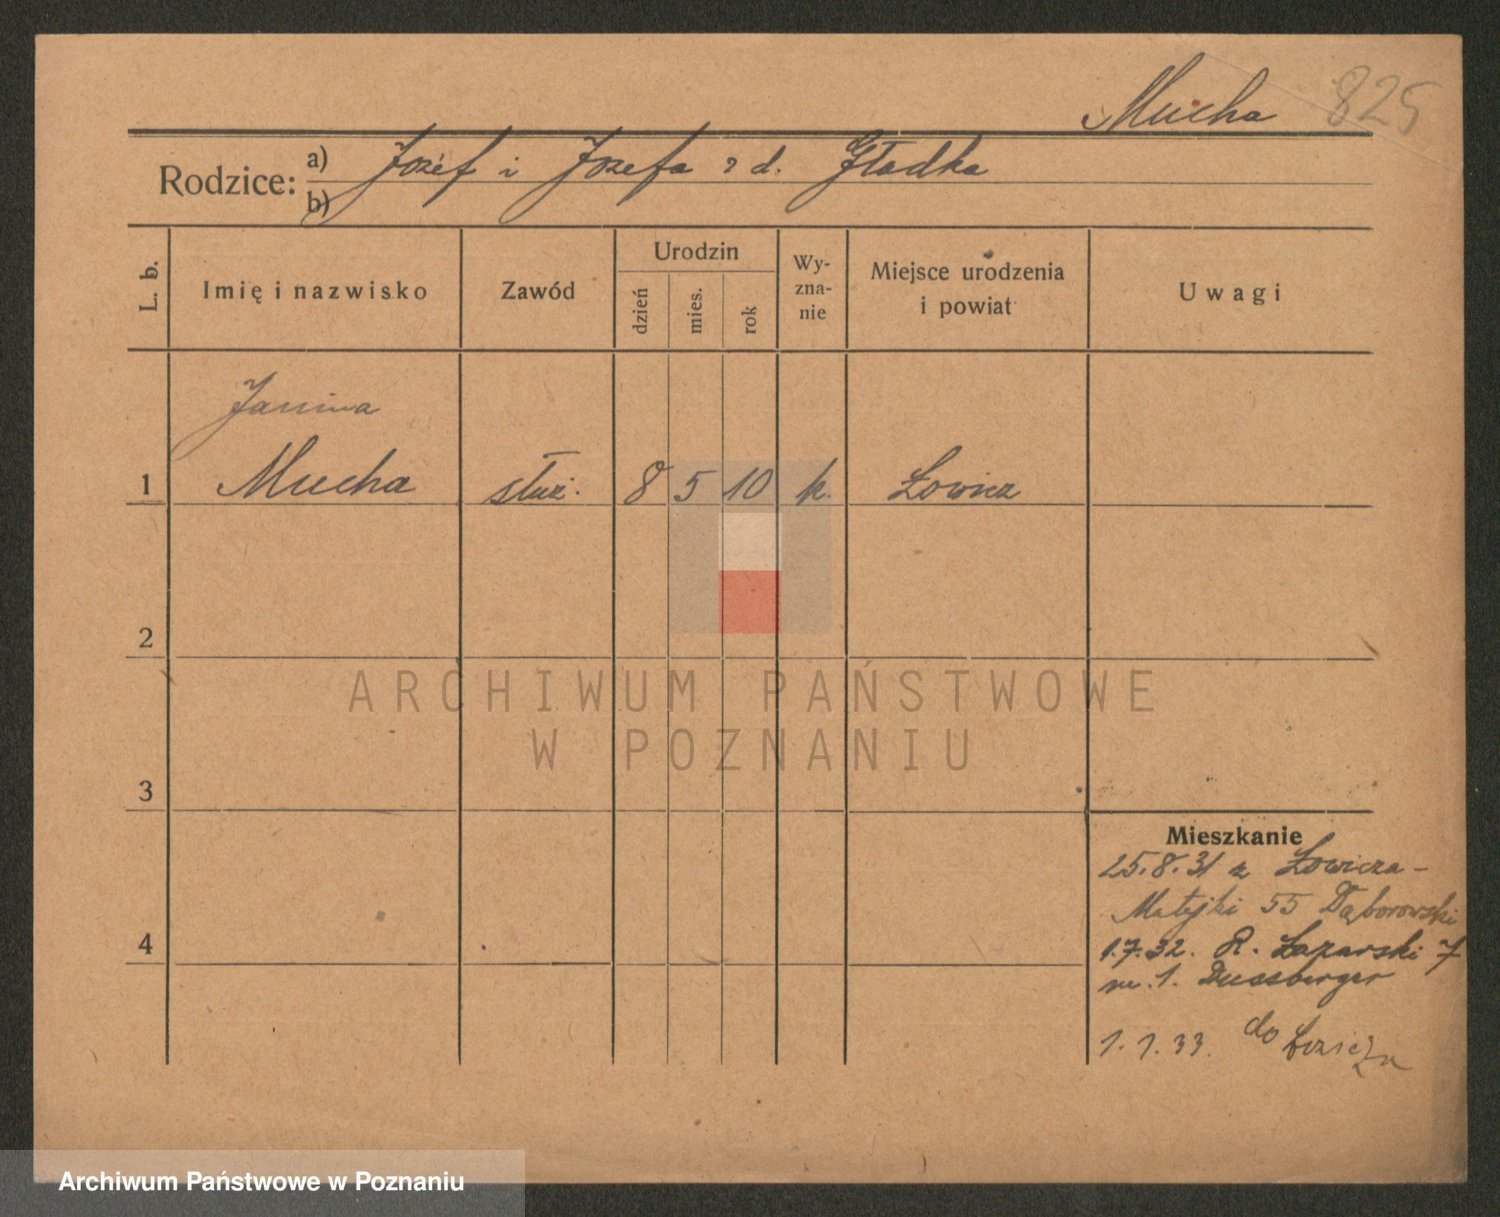 Mucha 825
Rodzice: a) Józef i Józefa z d. Gładka
b)
L. b.
Imię i nazwisko
Zawód
Urodzin
dzień
mies.
rok
Wy-
zna-
nie
Miejsce urodzenia
i powiat
Uwagi
Janina
1 Mucha służ. 8 5 10 k. Łowicz
2
ARCHIWUM PAŃSTWOWE
W POZNANIU
3
Mieszkanie
25.8.31 z Łowicza -
Matejki 55 Dąborowski
4
1.7.32. R. Łazarski 7
m. 1.
1.1.33. do
Archiwum Państwowe w Poznaniu